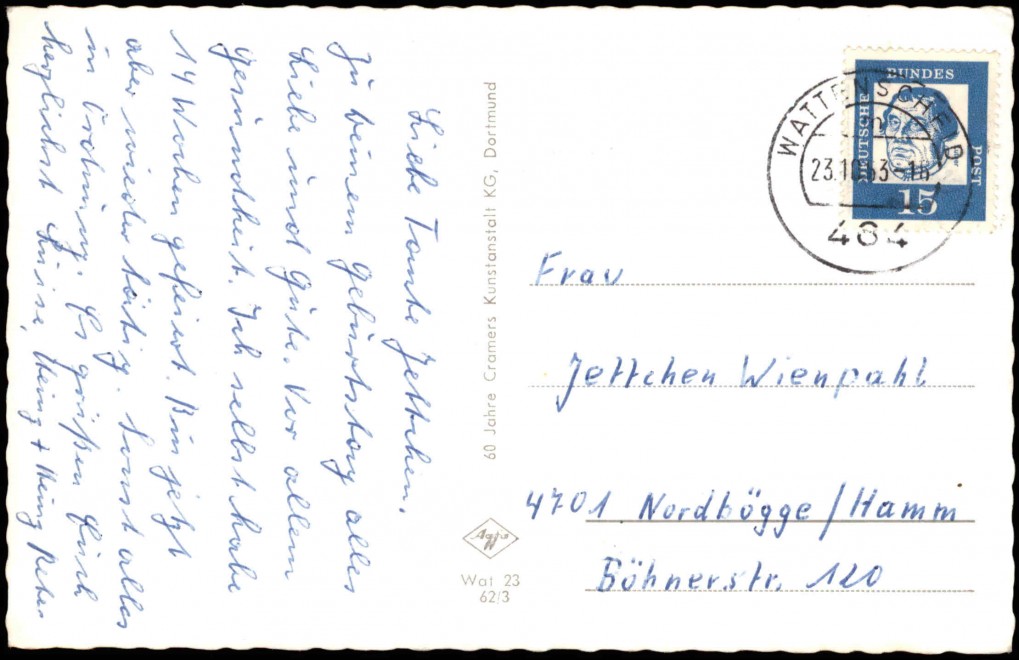 Liebe Tante Jettchen.
Zu deinem Geburtstag alles
Liebe und Gute. Vor allem
Gesundheit. Ich selbst habe
14 Wochen gefeiert. Bin jetzt
aber wieder tätig. Sonst alles
in Ordnung. Es grüßen Euch
herzlichst Luise, Heinz + Heinz Peter
60 Jahre Cramers Kunstanstalt KG, Dortmund
Agfa
Wat 23
62/3
DEUTSCHE BUNDES POST
15
WATTENSCHEID
23.10.63-14
484
Frau
Jettchen Wienpahl
4701 Nordbögge/Hamm
Böhnerstr. 120